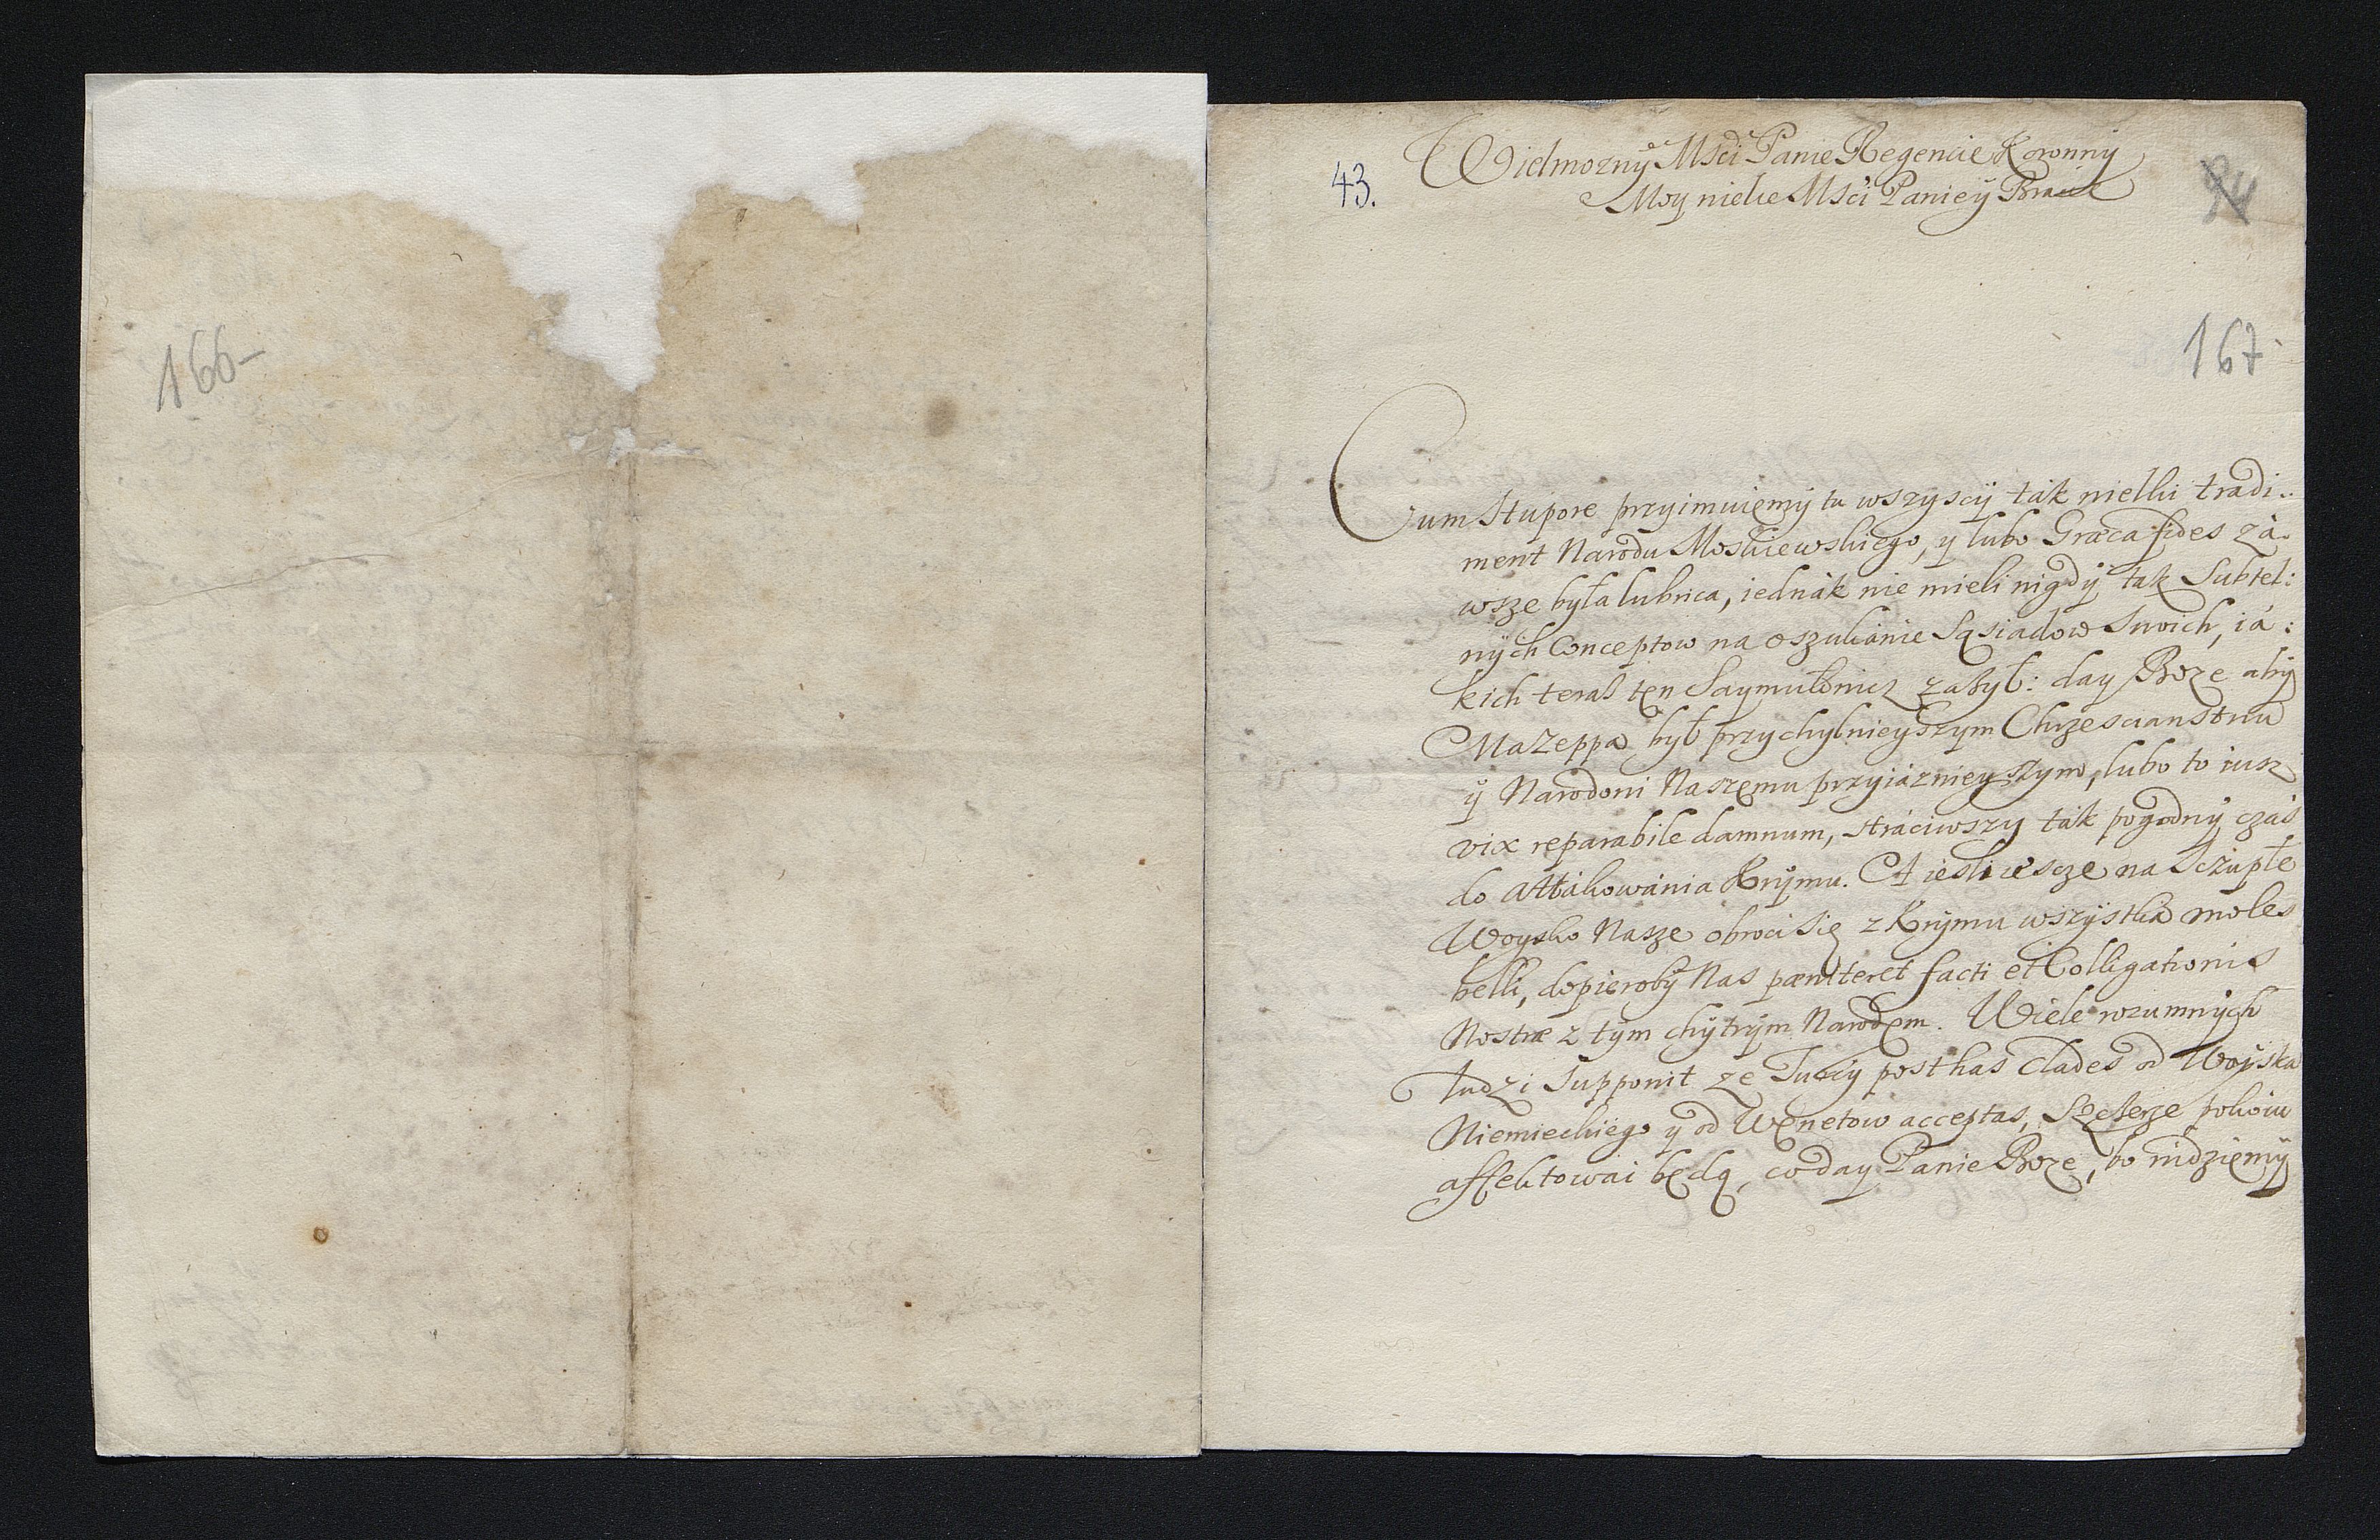 166-
43.
Wielmozny Msci Panie Regencie Koronny
Moy wielce Msci Panie y Bracie
94
167.
Cum stupore przyimuięmy tu wszyscy tak wielki tradi..
ment Narodu Moskiewskiego, y lubo Græca fides zá.
wsze była lubrica, iednák nie mieli nigdy tak Subtel:
nych Conceptow na oszukánie Sąsiadow Swoich, iá:
kich teras tęn Saymułowicz zażył: day Boze aby
Mazeppa był przychylnieyszym Chrzescianstwu
y Narodowi Naszęmu przyiáznieyszym, lubo to iusz
vix reparabile damnum, stráciwszy ták pogodny czás
do Attákowánia Krymu. A iesli iescze na Sczupłe
Woysko Nasze obroci Się z Krymu wszystká moles
belli, dopieroby Nas pæniteret facti et Colligationis
Nostræ z tym chytrym Narodęm. Wiele rozumnych
ludzi Supponit ze Turcy post has Clades od Woyska
Niemieckiego y od Węnetow acceptas, Szczerze pokoiu
affektowáć będą, co day Panie Boze, bo widzięmy